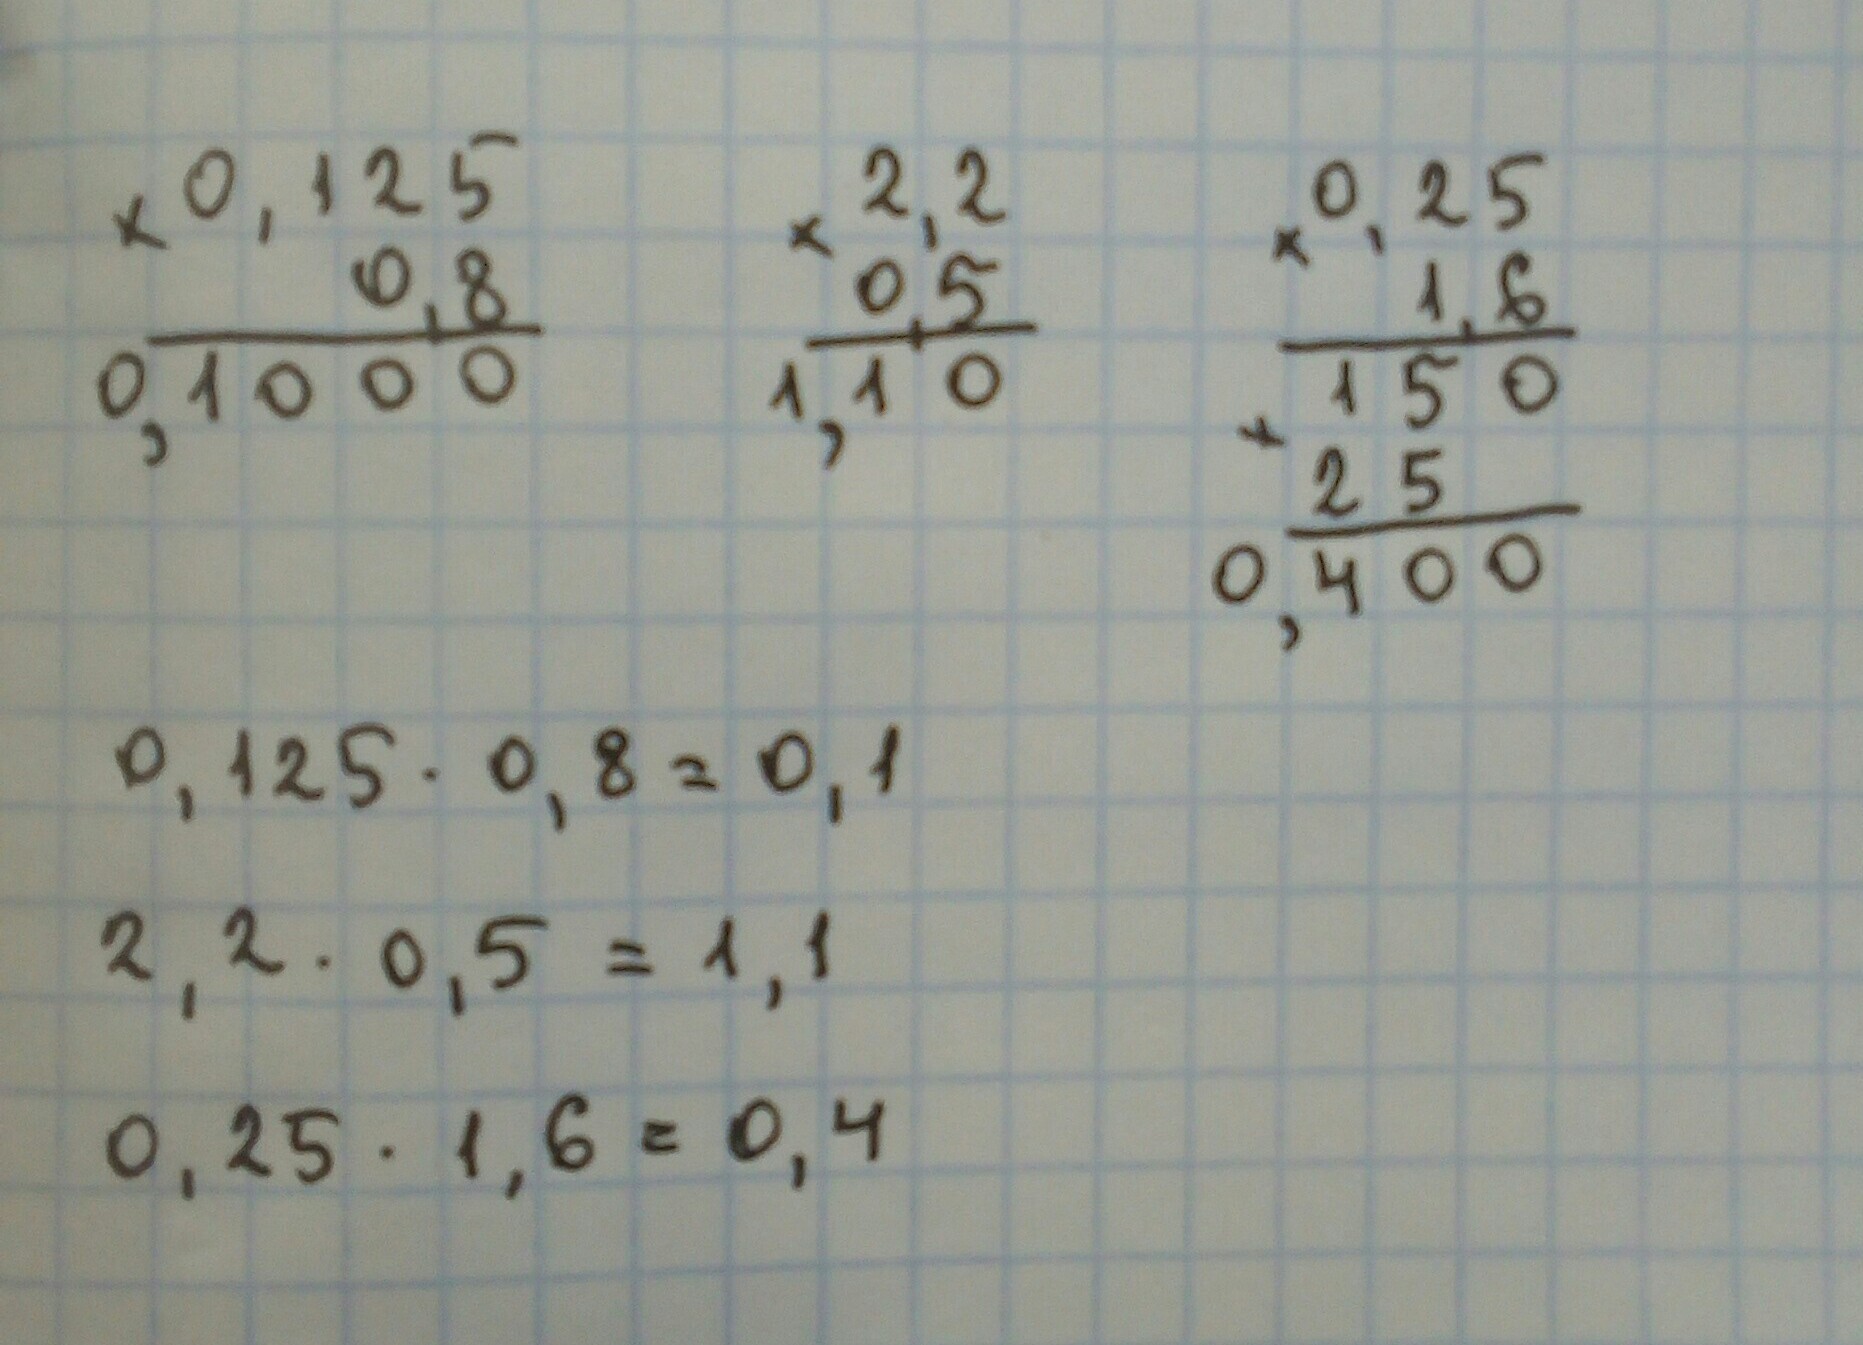 × 0,125
0,8
0,1000
× 2,2
0,5
1,10
× 0,25
1,6
150
+
25
0,400
0,125 · 0,8 = 0,1
2,2 · 0,5 = 1,1
0,25 · 1,6 = 0,4